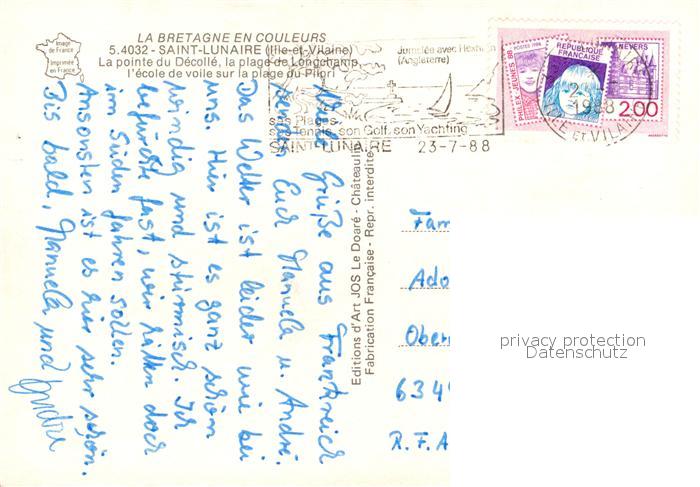 LA BRETAGNE EN COULEURS
5.4032 - SAINT-LUNAIRE (Ille-et-Vilaine)
La pointe du Décollé, la plage de Longchamp,
l'école de voile sur la plage du Pilori
Image de France
Imprimée en France
Journée avec
(Angleterre)
ses Plages
ses Tennis, son Golf, son Yachting
SAINT-LUNAIRE 23-7-88
POSTES 1988
PHILEX-JEUNES 88
REPUBLIQUE FRANÇAISE
NEVERS
2,00
1988
ET VILAINE
Editions d'Art JOS Le Doaré - Châteaulin
Fabrication Française - Repr. interdite
Viele Grüße aus Frankreich
senden Euch Manuela u. André.
Das Wetter ist leider wie bei
uns. Hier ist es ganz schön
windig und stürmisch. Ich
befürchte fast, wir hätten doch
im Süden fahren sollen.
Ansonsten ist es hier sehr schön.
Bis bald, Manuela und André
Fam
Ado
Ober
634
R.F.A
privacy protection
Datenschutz